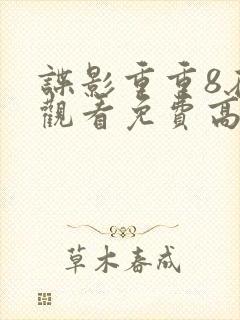 諜影重重8
觀看免費高
草木春成